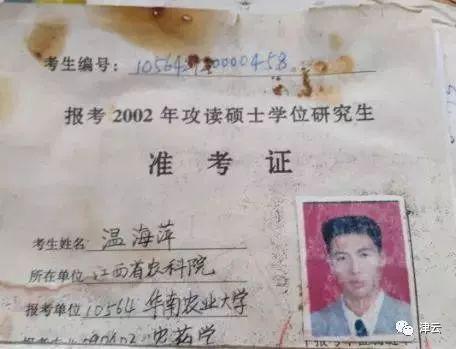 考生编号:
报考2002年攻读硕士学位研究生
准考证
考生姓名 温海萍
所在单位 江西省农科院
报考单位 10564 华南农业大学
报考专业 农药学
津云